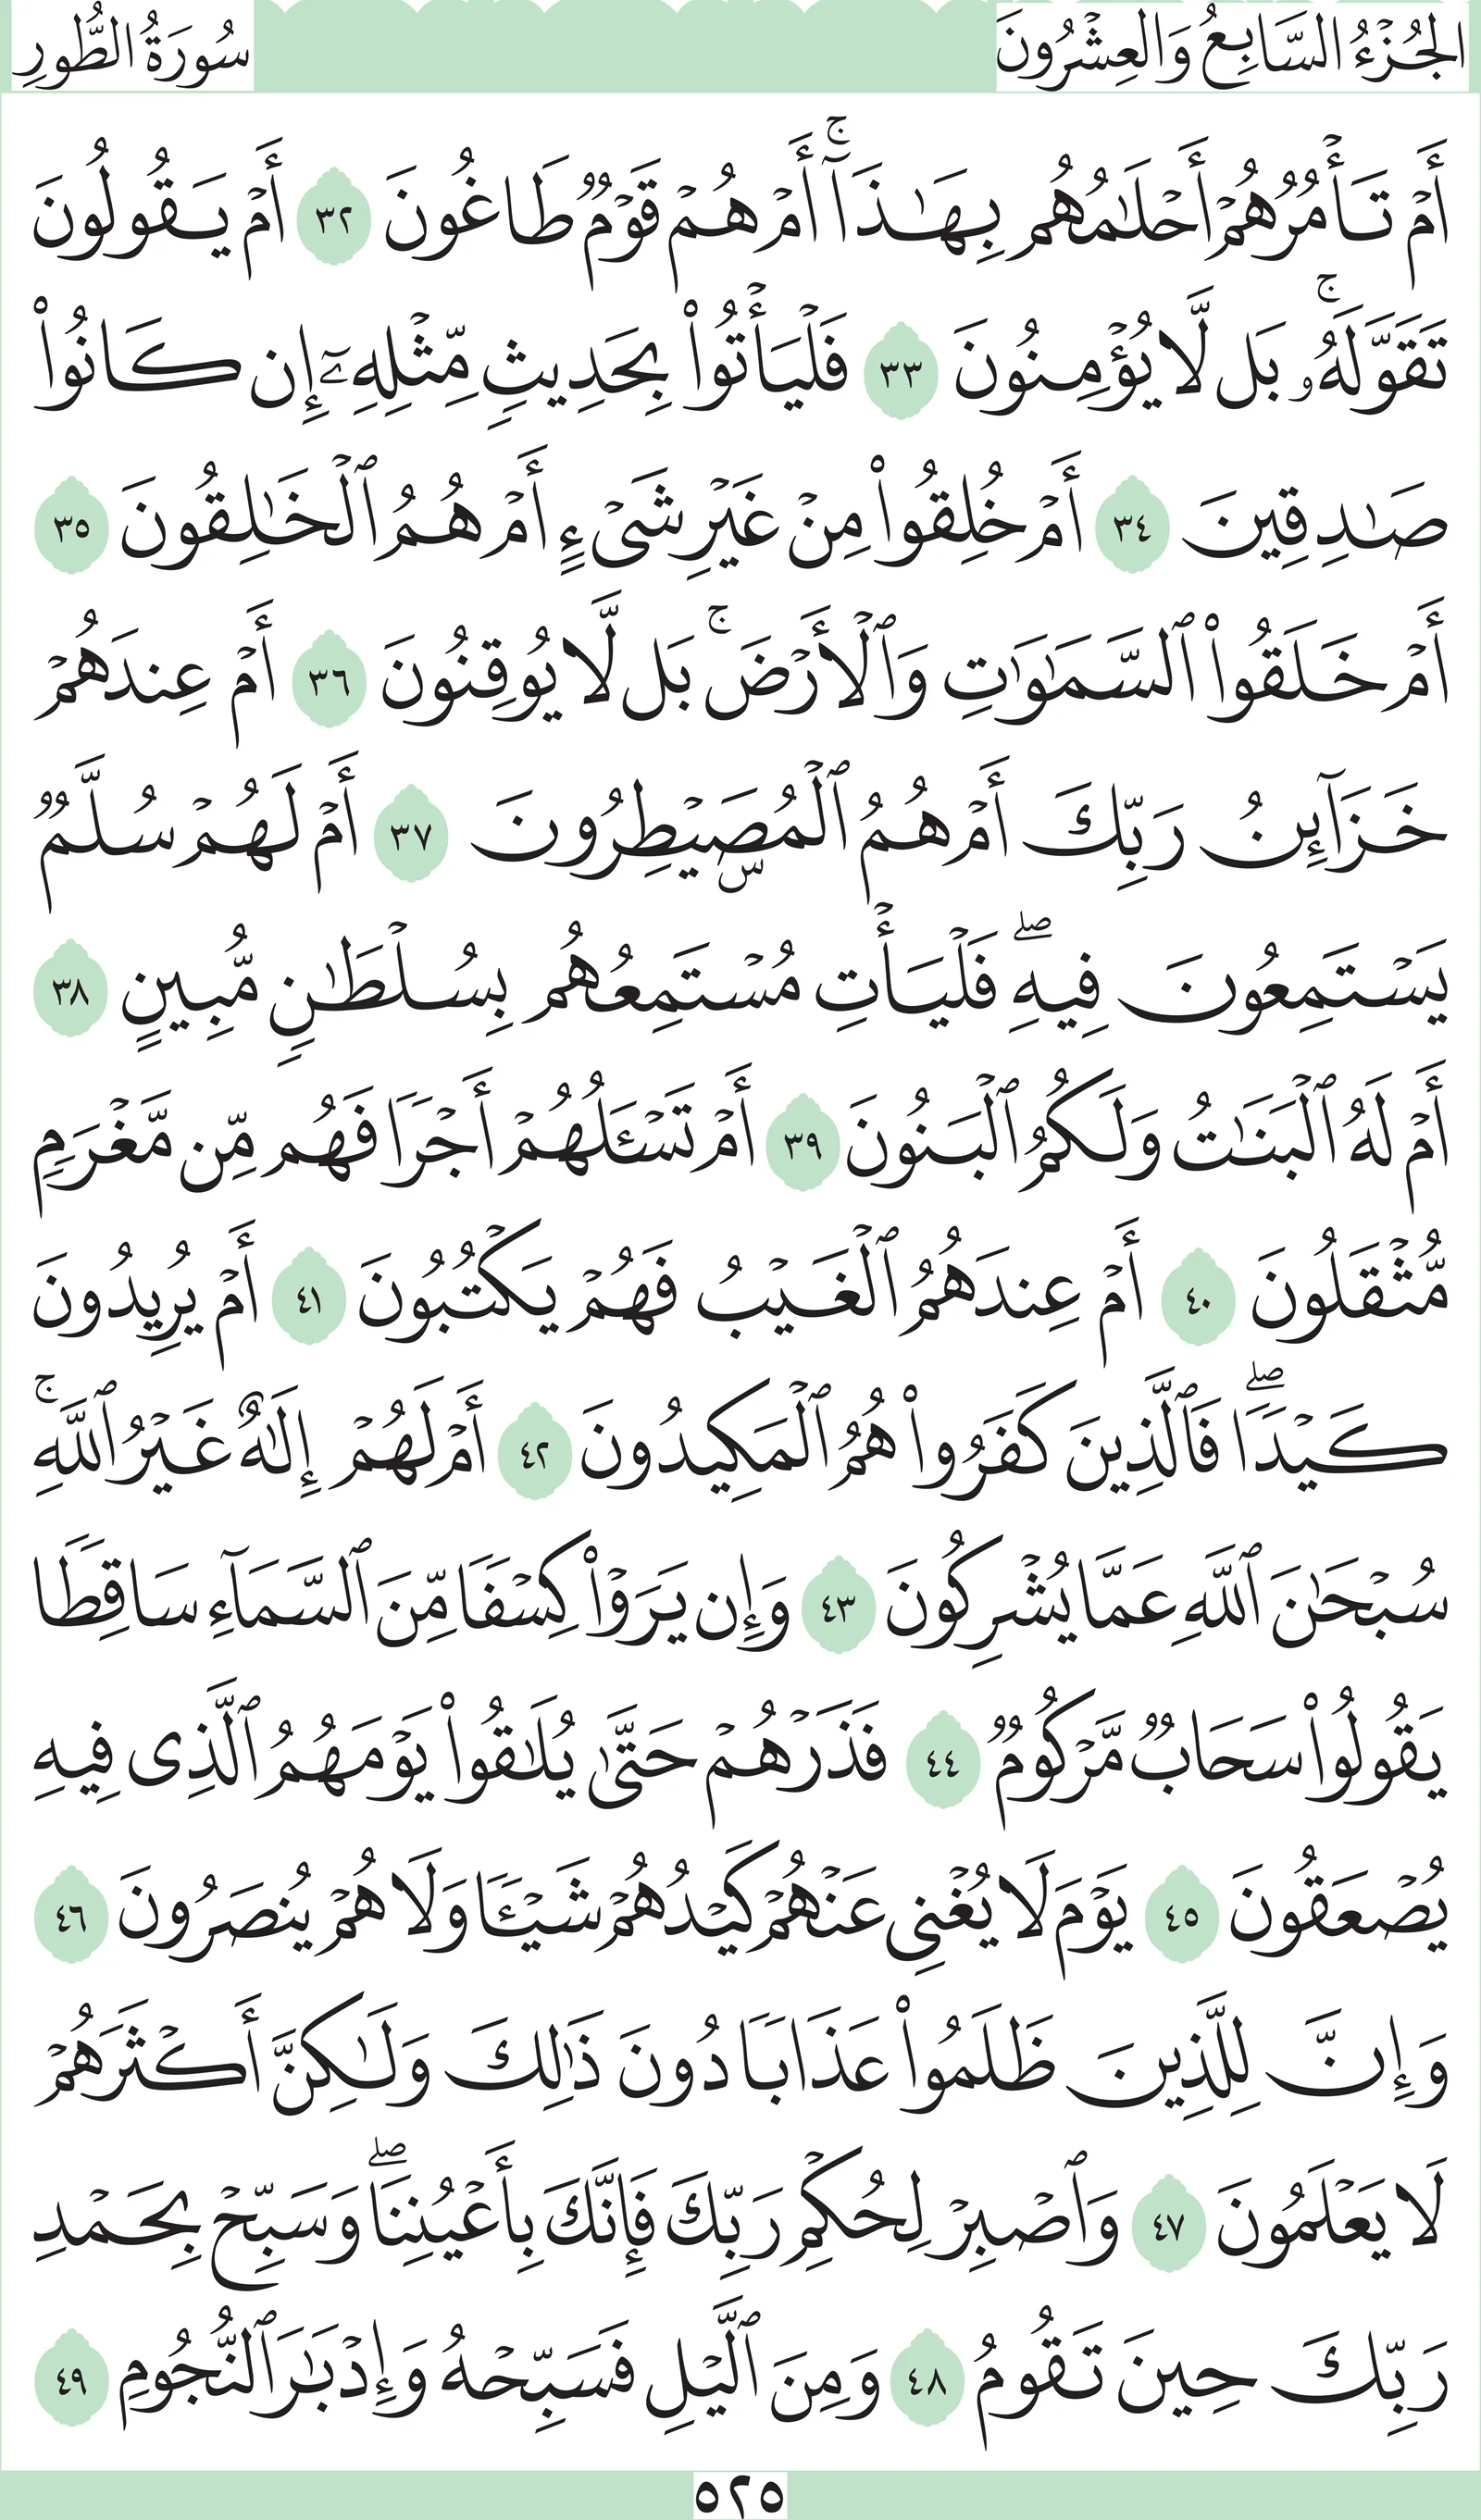 الجُزْءُ السَّابِعُ وَالعِشْرُونَ
سُورَةُ الطُّورِ
أَمْ تَأْمُرُهُمْ أَحْلَـٰمُهُم بِهَـٰذَآ ۚ أَمْ هُمْ قَوْمٌ طَاغُونَ ٣٢ أَمْ يَقُولُونَ
تَقَوَّلَهُۥ ۚ بَل لَّا يُؤْمِنُونَ ٣٣ فَلْيَأْتُوا۟ بِحَدِيثٍ مِّثْلِهِۦٓ إِن كَانُوا۟
صَـٰدِقِينَ ٣٤ أَمْ خُلِقُوا۟ مِنْ غَيْرِ شَىْءٍ أَمْ هُمُ ٱلْخَـٰلِقُونَ ٣٥
أَمْ خَلَقُوا۟ ٱلسَّمَـٰوَٰتِ وَٱلْأَرْضَ ۚ بَل لَّا يُوقِنُونَ ٣٦ أَمْ عِندَهُمْ
خَزَآئِنُ رَبِّكَ أَمْ هُمُ ٱلْمُصَۣيْطِرُونَ ٣٧ أَمْ لَهُمْ سُلَّمٌ
يَسْتَمِعُونَ فِيهِ ۖ فَلْيَأْتِ مُسْتَمِعُهُم بِسُلْطَـٰنٍ مُّبِينٍ ٣٨
أَمْ لَهُ ٱلْبَنَـٰتُ وَلَكُمُ ٱلْبَنُونَ ٣٩ أَمْ تَسْـَٔلُهُمْ أَجْرًا فَهُم مِّن مَّغْرَمٍ
مُّثْقَلُونَ ٤٠ أَمْ عِندَهُمُ ٱلْغَيْبُ فَهُمْ يَكْتُبُونَ ٤١ أَمْ يُرِيدُونَ
كَيْدًا ۖ فَٱلَّذِينَ كَفَرُوا۟ هُمُ ٱلْمَكِيدُونَ ٤٢ أَمْ لَهُمْ إِلَـٰهٌ غَيْرُ ٱللَّهِ ۚ
سُبْحَـٰنَ ٱللَّهِ عَمَّا يُشْرِكُونَ ٤٣ وَإِن يَرَوْا۟ كِسْفًا مِّنَ ٱلسَّمَآءِ سَاقِطًا
يَقُولُوا۟ سَحَابٌ مَّرْكُومٌ ٤٤ فَذَرْهُمْ حَتَّىٰ يُلَـٰقُوا۟ يَوْمَهُمُ ٱلَّذِى فِيهِ
يُصْعَقُونَ ٤٥ يَوْمَ لَا يُغْنِى عَنْهُمْ كَيْدُهُمْ شَيْـًٔا وَلَا هُمْ يُنصَرُونَ ٤٦
وَإِنَّ لِلَّذِينَ ظَلَمُوا۟ عَذَابًا دُونَ ذَٰلِكَ وَلَـٰكِنَّ أَكْثَرَهُمْ
لَا يَعْلَمُونَ ٤٧ وَٱصْبِرْ لِحُكْمِ رَبِّكَ فَإِنَّكَ بِأَعْيُنِنَا ۖ وَسَبِّحْ بِحَمْدِ
رَبِّكَ حِينَ تَقُومُ ٤٨ وَمِنَ ٱلَّيْلِ فَسَبِّحْهُ وَإِدْبَـٰرَ ٱلنُّجُومِ ٤٩
٥٢٥